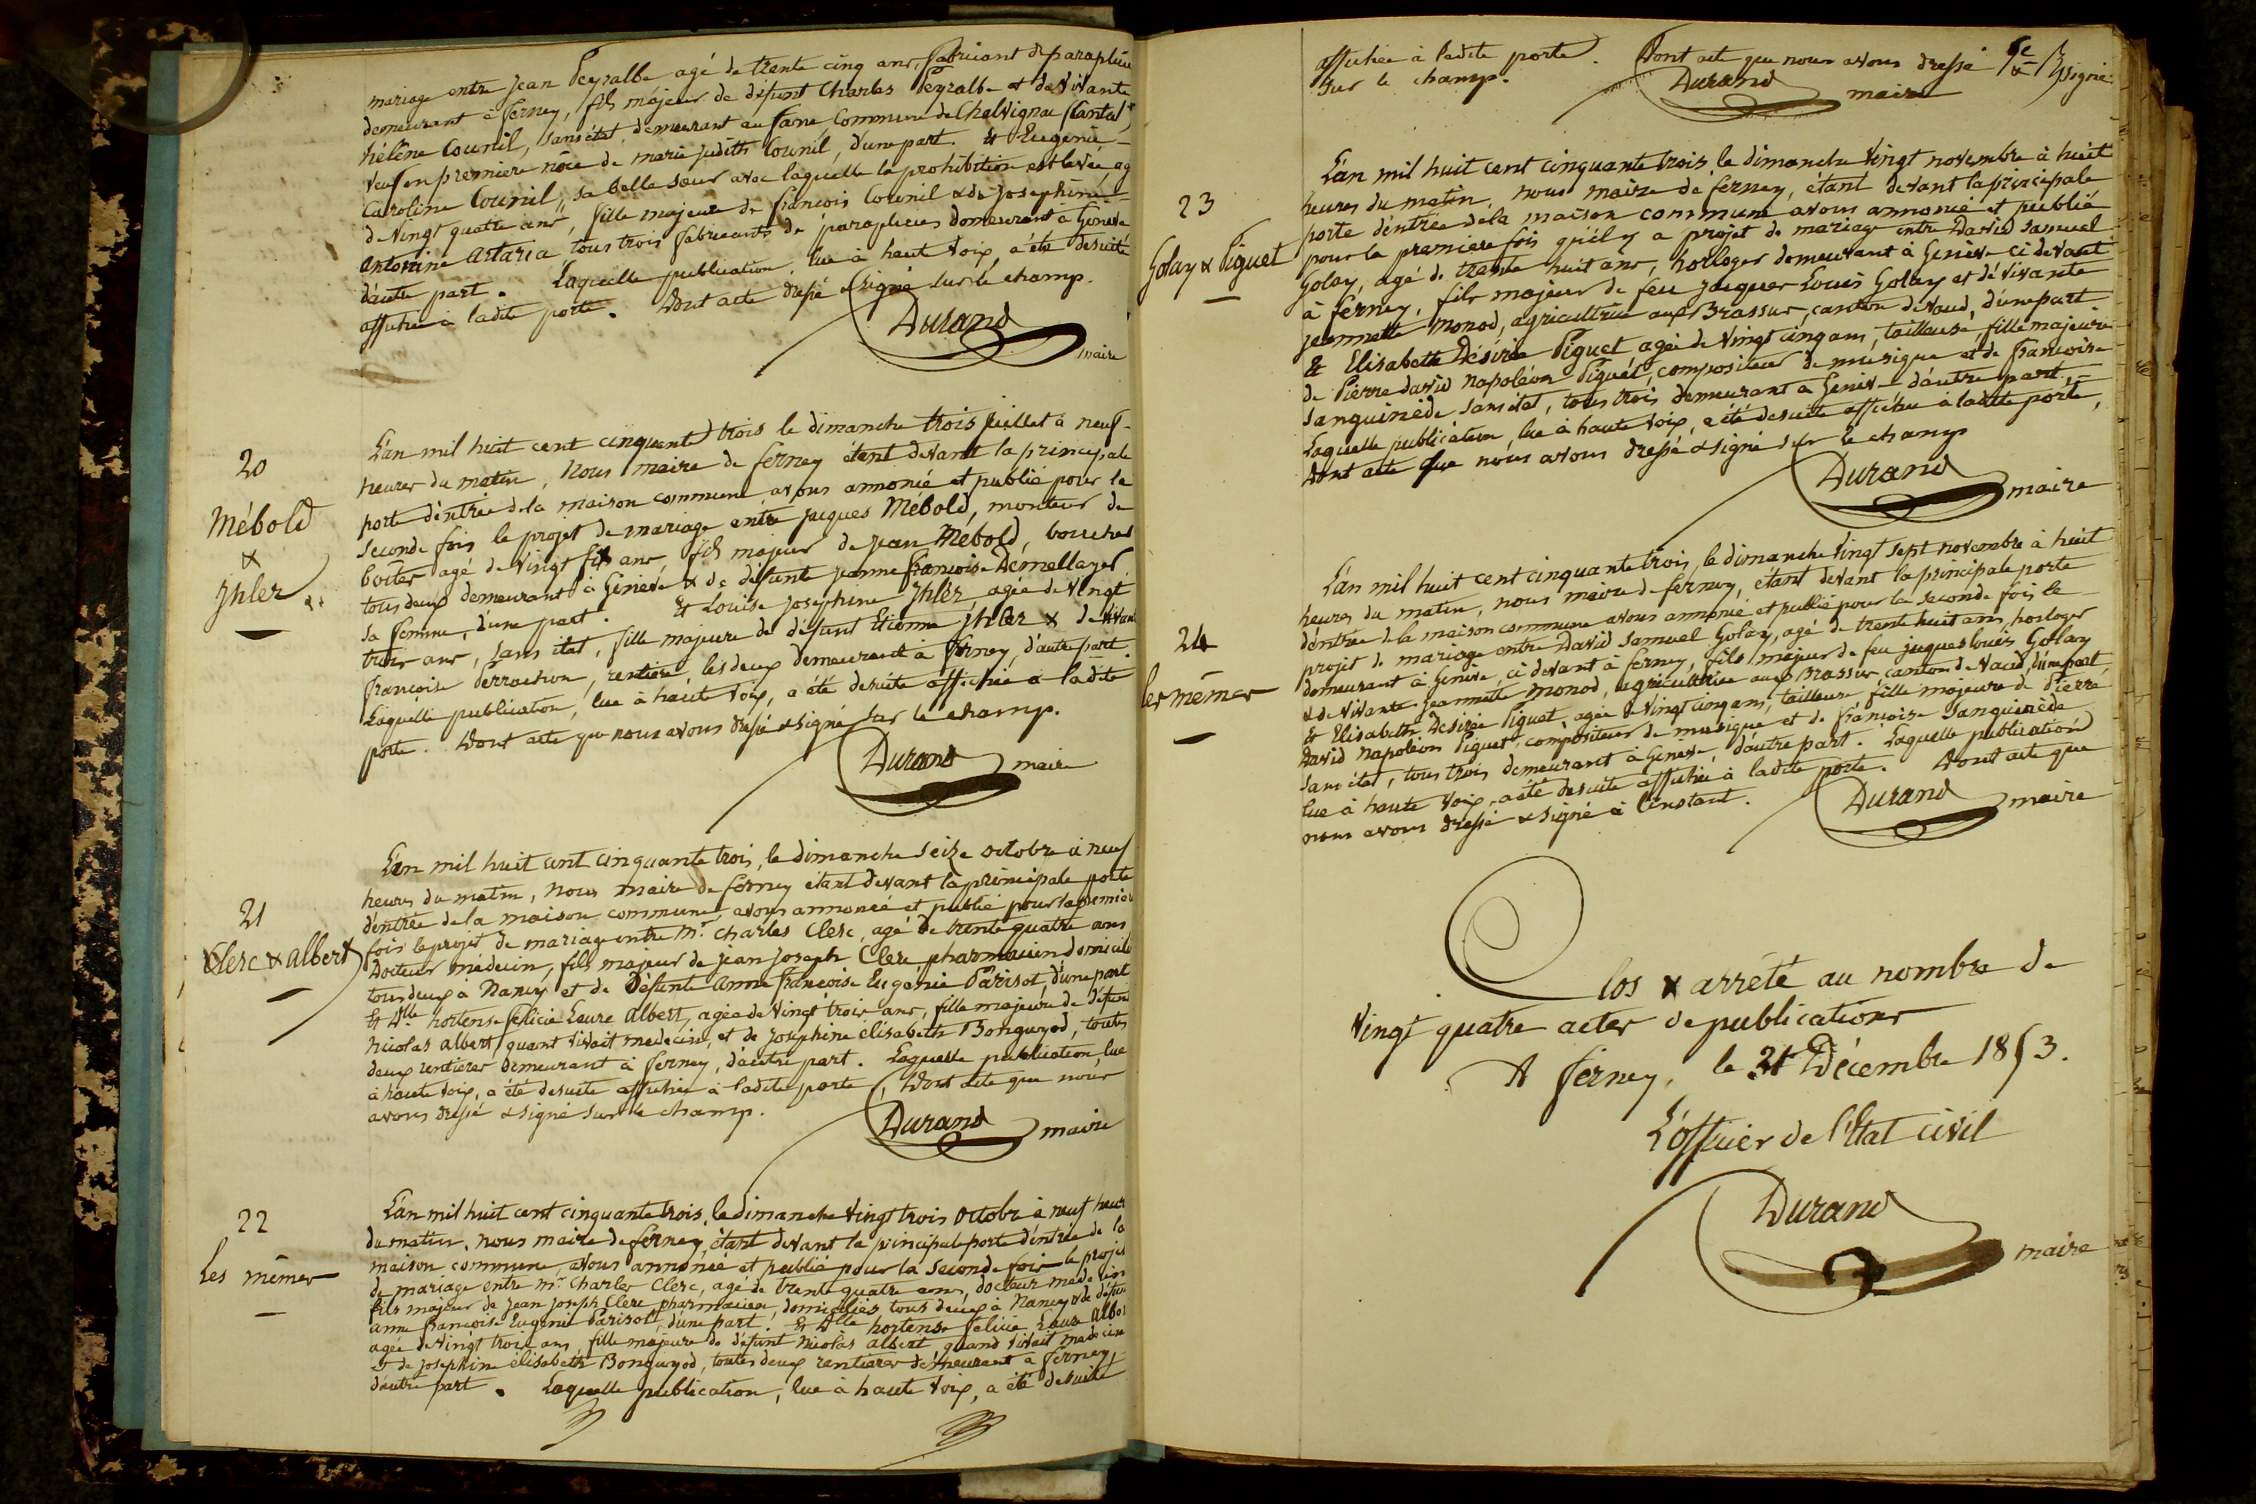 mariage entre Jean Peyralbe agé de trente cinq ans, fabricant de parapluies
demeurant à ferney, fils majeur de défunt Charles Peyralbe et de vivante
hélène Counil, sans état demeurant au Commune de Chalvignac (Cantal)
veuf en premiere nôce de marie judith Counil, d'une part. Et Eugenie
Caroline Counil, sa belle sœur avec laquelle la prohibition est levée ag
de vingt quatre ans, fille majeure de françois Counil & de Josephine
antonine Artaria, tous trois fabricants de parapluies demeurant à Genève
d'autre part. Laquelle publication, lue à haute voix, a été desuite
affichée à ladite porte. Dont acte dressé & signé sur le champ.
Durand
maire
20
Mébold
&
Jhler
L'an mil huit cent cinquante trois le dimanche trois juillet à neuf
heures du matin, Nous maire de ferney étant devant la principale
porte d'entrée de la maison commune avons annoncé et publié pour la
seconde fois le projet de mariage entre jacques Mébold, monteur de
boites agé de vingt six ans fils majeur de jean Mébold, boucher
tous deux demeurant à Genève & de défunte jeanne françoise
sa femme, d'une part. Et Louise Josephine Jhler agée de vingt
trois ans, sans état, fille majeure de défunt Etienne Jhler & de vivante
françoise Perrachon, rentière, les deux demeurant à ferney, d'autre part.
Laquelle publication, lue à haute voix, a été desuite affichée à ladite
porte. Dont acte que nous avons dressé & signé sur le champ.
Durand maire
21
Clerc & albert
L'an mil huit cent cinquante trois, le dimanche seize octobre à neuf
heures du matin, Nous maire de ferney étant devant la principale porte
d'entrée de la maison commune, avons annoncé et publié pour la premiere
fois le projet de mariage entre Mr. Charles Clerc, agé de trente quatre ans
Docteur médecin, fils majeur de jean joseph Clerc pharmacien domicilié
tous deux à Nancy et de Défunte anne françoise Eugénie Parisot, d'une part
Et Dlle hortense félicie Laure albert, agée de vingt trois ans, fille majeure de défunt
Nicolas albert quant vivait medecin, et de Joséphine élisabeth Bonguyod, toutes
deux rentières demeurant à ferney, d'autre part. Laquelle publication, lue
à haute voix, a été desuite affichée à ladite porte, Dont acte que nous
avons dressé & signé sur le champ.
Durand maire
22
Les mêmes
L'an mil huit cent cinquante trois, le dimanche vingt trois octobre à neuf heures
du matin, nous maire de ferney, étant devant la principale porte d'entrée de la
maison commune, avons annoncé et publié pour la seconde fois le projet
de mariage entre Mr Charles Clerc, agé de trente quatre ans, docteur medecin
fils majeur de jean joseph Clerc pharmacien, domiciliés tous deux à Nancy & de défunte
anne françoise Eugenie Parisot, d'une part. Et Dlle hortense félicie Laure albert
agée de vingt trois ans, fille majeure de défunt Nicolas albert quand vivait medecin
et de Josephine élisabeth Bonguyod, toutes deux rentières demeurant à ferney,
d'autre part. Laquelle publication, lue à haute voix, a été desuite
affichée à ladite porte. Dont acte que nous avons dressé
sur le champ. & signé
Durand maire
23
Golay & Piguet
L'an mil huit cent cinquante trois, le dimanche vingt novembre à huit
heures du matin, nous maire de ferney, étant devant la principale
porte d'entrée de la maison commune avons annoncé et publié
pour la premiere fois qu'il y a projet de mariage entre David Samuel
Golay, agé de trente huit ans, horloger demeurant à Genève ci devant
à ferney, fils majeur de feu jacques Louis Golay et de vivante
jeannette Monod, agricultrice aux Brassus, canton de Vaud, d'une part
Et Elisabeth Désirée Piguet agée de vingt cinq ans, tailleuse, fille majeure
de Pierre David Napoléon Piguet, compositeur de musique et de françoise
Sanguinède sans état, tous trois demeurant à Genève d'autre part,
Laquelle publication, lue à haute voix, a été desuite affichée à ladite porte,
Dont acte que nous avons dressé & signé sur le champ
Durand maire
24
les mêmes
L'an mil huit cent cinquante trois, le dimanche vingt sept novembre à huit
heures du matin, nous maire de ferney, étant devant la principale porte
d'entrée de la maison commune avons annoncé et publié pour la seconde fois le
projet de mariage entre David Samuel Golay, agé de trente huit ans, horloger
demeurant à Genève, ci devant à ferney, fils majeur de feu jaques louis Golay
& de vivante Jeannette Monod, agricultrice aux Brassus, canton de Vaud, d'une part
Et Elisabeth Désirée Piguet, agée de vingt cinq ans, tailleuse fille majeure de Pierre
David Napoléon Piguet, compositeur de musique et de françoise Sanguinède
sans état, tous trois demeurant à Genève, d'autre part. Laquelle publication
lue à haute voix, a été desuite affichée à ladite porte. Dont acte que
nous avons dressé & signé à l'instant.
Durand maire
Clos & arrêté au nombre de
vingt quatre actes de publications
A ferney, le 31 Décembre 1853.
L'officier de l'Etat civil
Durand
maire